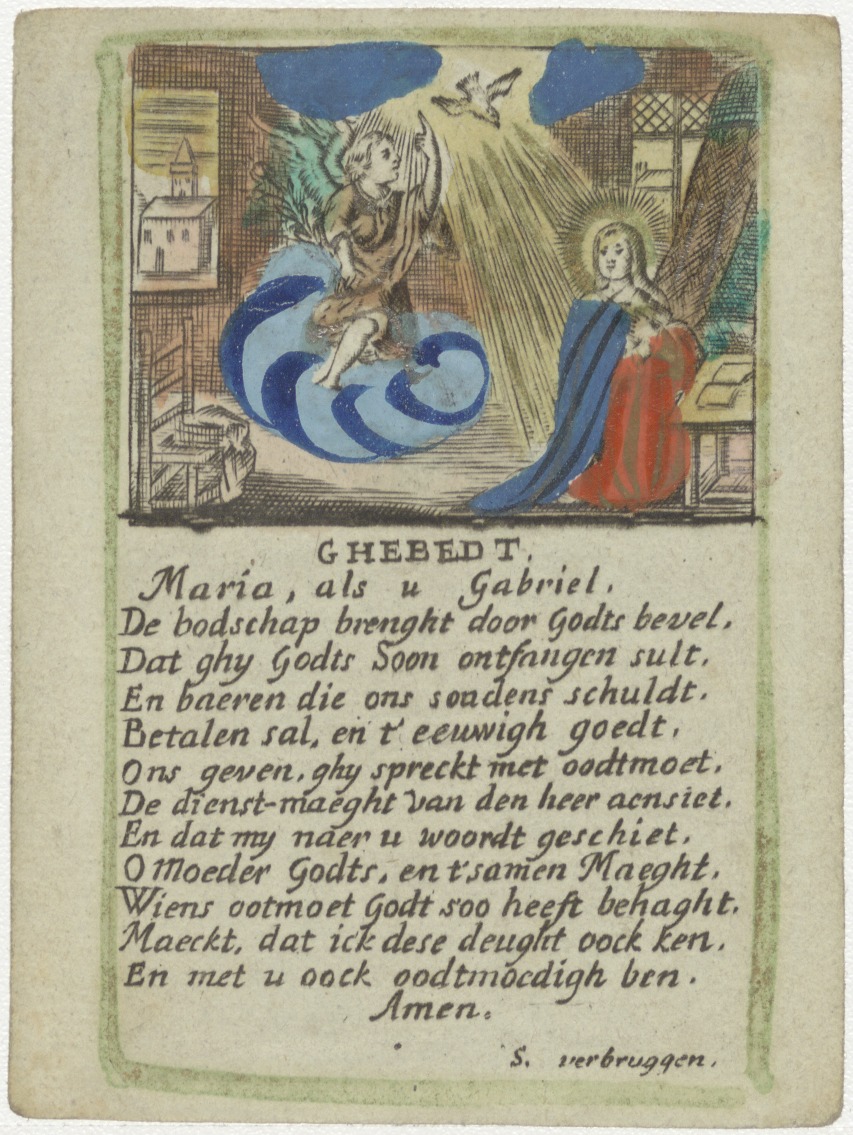 GHEBEDT.
Maria, als u Gabriel.
De bodschap brenght door Godts bevel.
Dat ghy Godts Soon ontfangen sult.
En baeren die ons sondens schuldt.
Betalen sal, en t'eeuwigh goedt.
Ons geven, ghy spreckt met oodtmoet.
De dienst-maeght van den heer aensiet.
En dat my naer u woordt geschiet.
O Moeder Godts, en t'samen Maeght.
Wiens ootmoet Godt soo heeft behaght.
Maeckt, dat ick dese deught oock ken.
En met u oock oodtmoedigh ben.
Amen.
S. verbruggen.